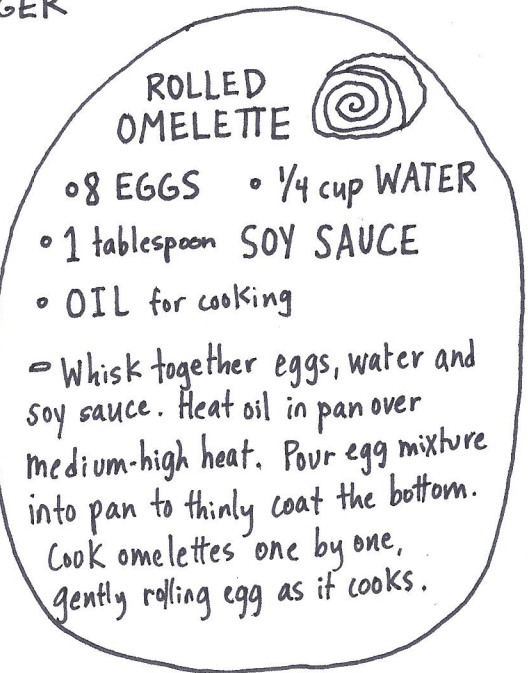 ROLLED
OMELETTE
• 8 EGGS • 1/4 cup WATER
• 1 tablespoon SOY SAUCE
• OIL for cooking
- Whisk together eggs, water and
soy sauce. Heat oil in pan over
medium-high heat. Pour egg mixture
into pan to thinly coat the bottom.
Cook omelettes one by one,
gently rolling egg as it cooks.